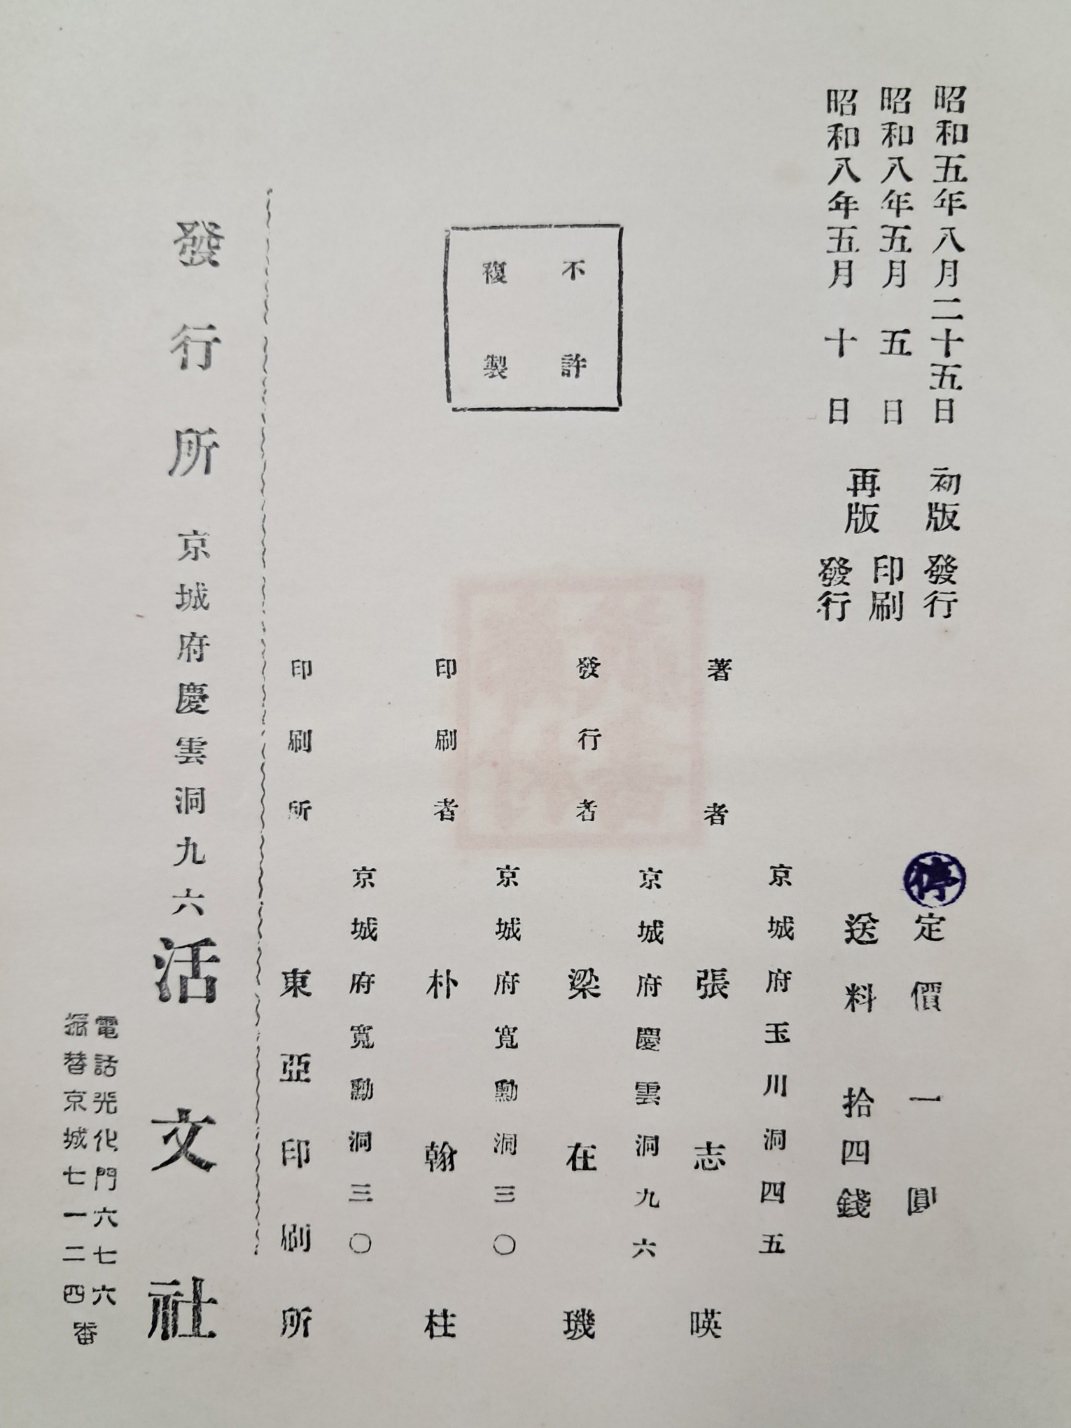 昭和五年八月二十五日 初版 發行
昭和八年五月 五日 再版 印刷
昭和八年五月 十日 發行
不許
複製
停
定價 一圓
送料 拾四錢
京城府玉川洞四五
著者 張志暎
京城府慶雲洞九六
發行者 梁在璣
京城府寬勳洞三〇
印刷者 朴翰柱
京城府寬勳洞三〇
印刷所 東亞印刷所
發行所 京城府慶雲洞九六 活文社
電話光化門六七六
振替京城七一二四番